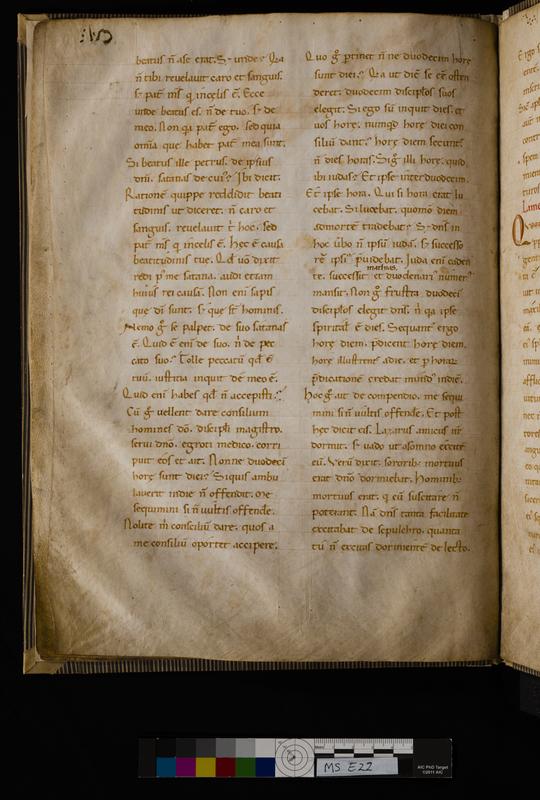 beatus n̄ a se erat. Sꝫ unde? Q̄a
n̄ tibi revelavit caro et sanguis.
sꝫ pat̄ ms̄ q̄ in celis ē. Ecce
unde beatus es. n̄ de tuo. sꝫ de
meo. Non q̄a pat̄ ego. sed quia
om̄ia que habet pat̄ mea sunt.
Si beatus ille petrus. de ipsius
satanas de cui? Ibi dicit.
Rationē quippe reddidit beati
tudinis ut diceret. n̄ caro et
sanguis. revelavit t̄ hoc. sed
pat̄ ms̄ q̄ in celis ē. Hec ē causa
beatitudinis tue. Qd̄ vō dixit
redi p̄ me satana. audi etiam
huius rei causā. Non eni sapis
que dī sunt. sꝫ que st̄ hominis.
Nemo ḡ se palpet. de suo satanas
ē. Quid ē eni de suo. n̄ de pec
cato suo? Tolle peccatū qd̄ ē
tuū. iustitia inquit de meo ē.
Quid eni habes qd̄ n̄ accepisti?
Cū ḡ vellent dare consilium
homines dō. discipli magistro.
servi dnō. egroti medico. corri
puit eos et ait. Nonne duodeci
hore sunt diei? Siquis ambu
laverit in die n̄ offendit. me
sequimini si n̄ vultis offende.
Nolite m̄ consiliū dare. quos a
me consiliū oportet accipere.
Quo ḡ p̄tinet n̄ne duodecim hore
sunt diei? Q̄a ut diē se eē osten
deret. duodecim discip̄los suos
elegit. Si ego sū inquit dies. et
vos hore. numqd̄ hore diei con
siliū dant? hore diem secunt̄
n̄ dies horas. Si ḡ illi hore. quid
ibi iudas? Et ipse inter duodecim.
Et ipse hora. Qui si hora erat lu
cebat. Si lucebat. quomō diem
ad mortē tradebat? Sꝫ dn̄s in
hoc v̄bo n̄ ipsū iudā. sꝫ successo
rē ipsī p̄videbat. Juda eni caden
mathias.
te. successit et duodenari numer
mansit. Non ḡ frustra duodeci
discip̄los elegit dn̄s. n̄ q̄a ipse
spiritał ē dies. Sequant̄ ergo
hore diem. p̄dicent hore diem.
hore illustrent̄ a die. et p̄ horarū
p̄dicationē credat mūdˀ in diē.
Hoc ḡ ait de compendio. me sequi
mini si n̄ vultis offende. Et post
hec dicit eis. Lazarus amicus nr̄
dormit. sꝫ vado ut a somno excitē
eū. Verū dixit. sororibꝫ mortuus
erat dnō dormiebat. Hominibꝫ
mortuus erat. q̄ eū suscitare n̄
poterant. Nā dn̄s tanta facilitate
excitabat de sepulchro. quanta
tū n̄ excitas dormiente de lecto.
MS E22